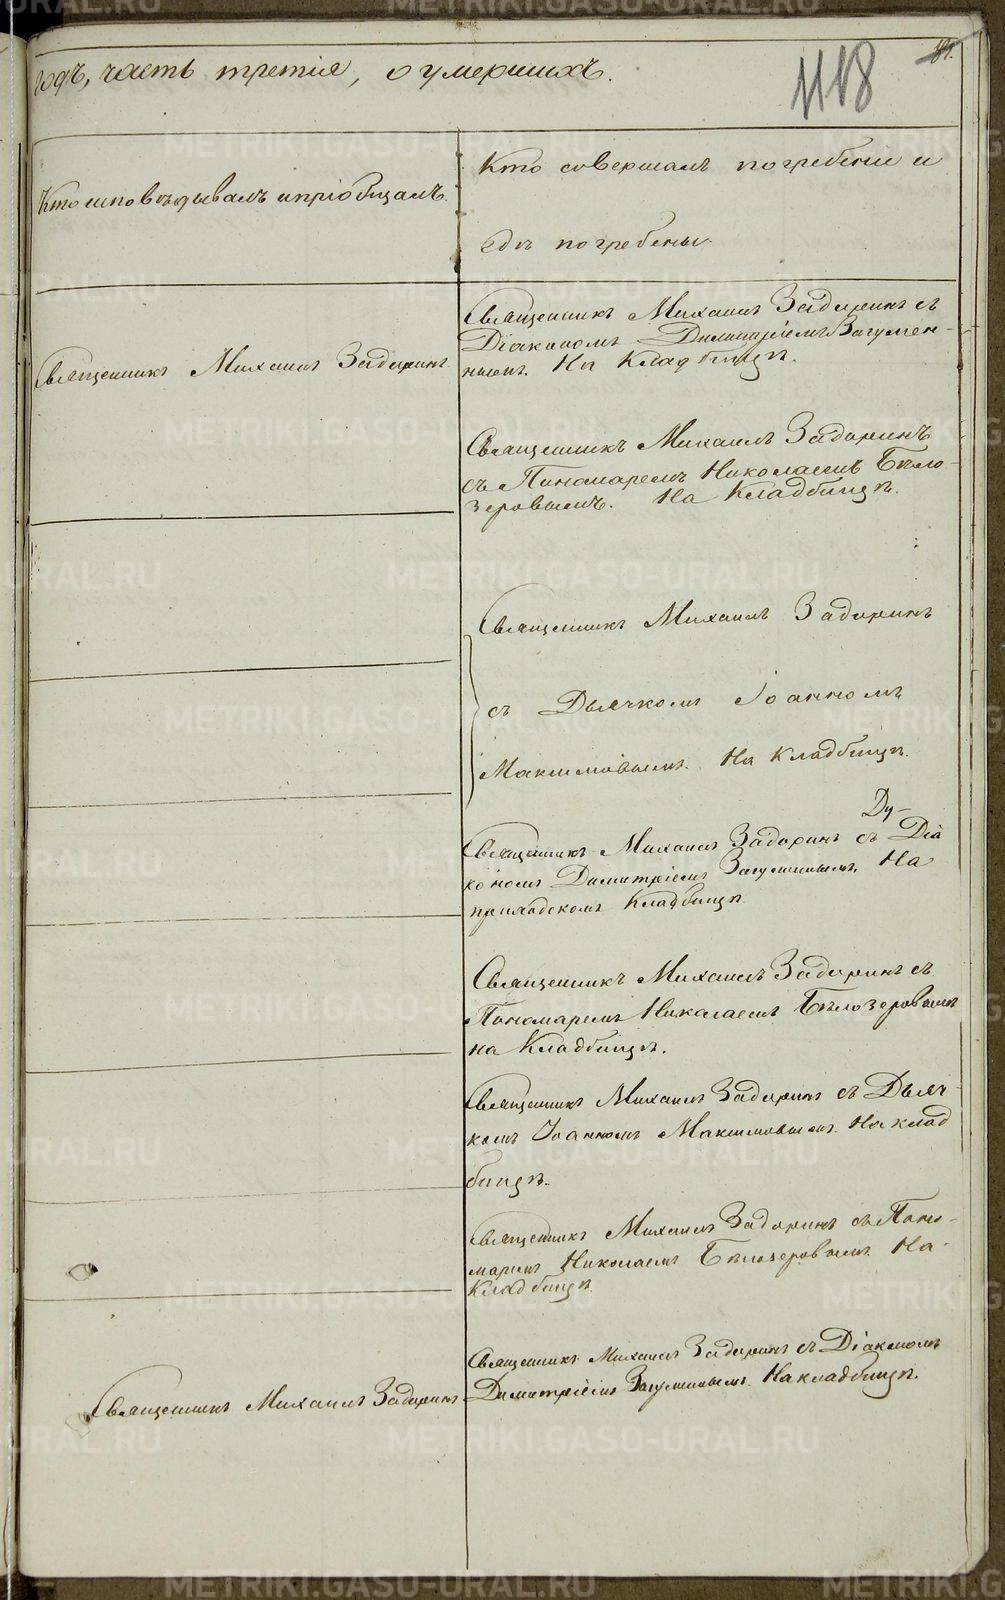 годъ, часть третія, о умершихъ.
1118
Кто исповѣдывалъ и пріобщалъ.
Кто совершалъ погребеніе и
гдѣ погребены.
Священникъ Михаилъ Задоринъ
Священникъ Михаилъ Задоринъ съ
Діакономъ Димитріемъ Загумен-
нымъ. На Кладбищѣ.
Священникъ Михаилъ Задоринъ
съ Пономаремъ Николаемъ Бѣло-
зеровымъ. На Кладбищѣ.
Священникъ Михаилъ Задоринъ
съ Дьячкомъ Іоанномъ
Максимовымъ. На Кладбищѣ.
Ду-
Священникъ Михаилъ Задоринъ съ Діа
кономъ Димитріемъ Загуменнымъ. На
приходскомъ Кладбищѣ
Священникъ Михаилъ Задоринъ съ
Пономаремъ Николаемъ Бѣлозеровымъ
на Кладбищѣ.
Священникъ Михаилъ Задоринъ съ Дьяч-
комъ Іоанномъ Максимовымъ. На клад
бищѣ.
Священникъ Михаилъ Задоринъ съ Поно-
маремъ Николаемъ Бѣлозеровымъ. На
Кладбищѣ.
Священникъ Михаилъ Задоринъ
Священникъ Михаилъ Задоринъ съ Діакономъ
Димитріемъ Загуменнымъ. На кладбищѣ.
METRIKI.GASO-URAL.RU